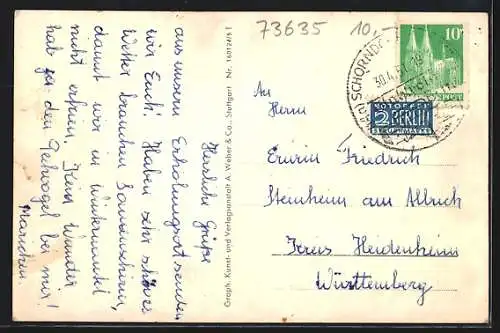 73635 10,-
Herrliche Grüße
aus unserem Erholungsort senden
wir Euch! Haben sehr schönes
Wetter brauchen Sonnenschirm,
damit wir in Wintermantel
nicht erfrieren. Kein Wunder
hat ja den bei mir!
Mariechen.
Graph. Kunst- und Verlagsanstalt A. Weber & Co., Stuttgart Nr.
An
Herrn
Erwin Friedrich
Steinheim am Albuch
Kreis Heidenheim
Württemberg
SCHORNDORF
30.4.51
10
NOTOPFER
2 BERLIN
STEUERMARKE